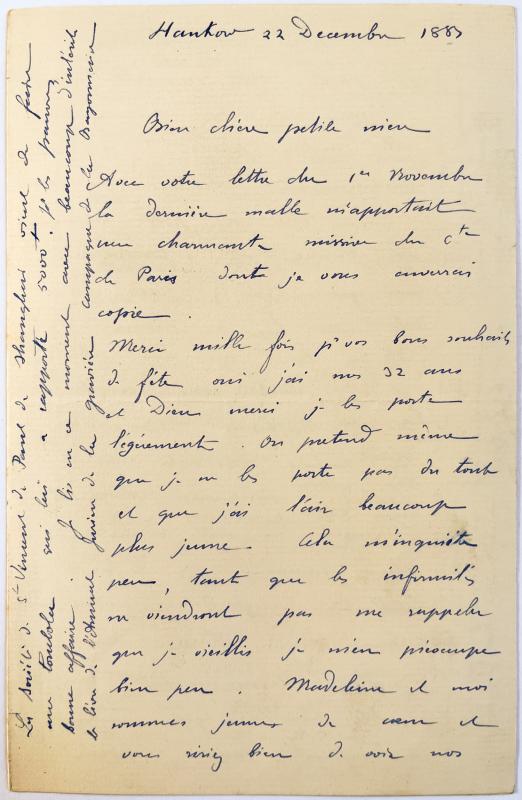 Hankow 22 Decembre 188
Bien chère petite mère
Avec votre lettre du 1er Novembre
la dernière malle m'apportait
une charmante missive du Cte
de Paris dont je vous enverrai
copie.
Merci mille fois pr vos bons souhaits
de fête oui j'ai mes 32 ans
et Dieu merci je les porte
légèrement. On prétend même
que je ne les porte pas du tout
et que j'ai l'air beaucoup
plus jeune. Cela m'inquiète
peu, tant que les infirmités
ne viendront pas me rappeler
que je vieillis je m'en préocupe
bien peu. Madeleine et moi
sommes jeunes de cœur et
vous ririez bien de voir nos
La Société de St Vincent de Paul de Shanghai vient de faire
une tombola qui lui a rapporté 5000 pr les pauvres
bonne affaire. Je lis en ce moment avec beaucoup d'intérêt
le livre de l'Amiral Jurien de la Gravière campagne de la Bayonnaise